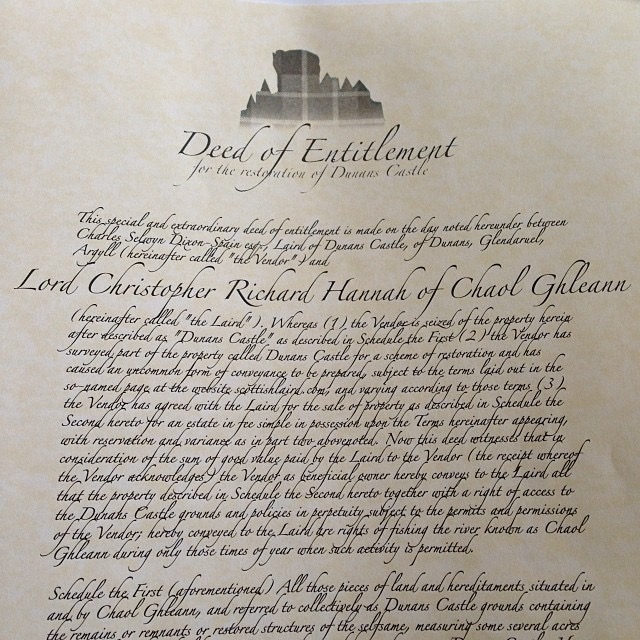 Deed of Entitlement
for the restoration of Dunans Castle
This special and extraordinary deed of entitlement is made on the day noted hereunder between
Charles Selwyn Dixon-Spain esq., Laird of Dunans Castle, of Dunans, Glendaruel,
Argyll (hereinafter called "the Vendor") and
Lord Christopher Richard Hannah of Chaol Ghleann
(hereinafter called "the Laird"). Whereas (1) the Vendor is seized of the property herein
after described as "Dunans Castle" as described in Schedule the First (2) the Vendor has
surveyed part of the property called Dunans Castle for a scheme of restoration and has
caused an uncommon form of conveyance to be prepared, subject to the terms laid out in the
so-named page at the website scottishlaird.com, and varying according to those terms (3)
the Vendor has agreed with the Laird for the sale of property as described in Schedule the
Second hereto for an estate in fee simple in possession upon the Terms hereinafter appearing,
with reservation and variance as in part two abovenoted. Now this deed witnesses that in
consideration of the sum of good value paid by the Laird to the Vendor (the receipt whereof
the Vendor acknowledges) the Vendor as beneficial owner hereby conveys to the Laird all
that the property described in Schedule the Second hereto together with a right of access to
the Dunans Castle grounds and policies in perpetuity subject to the permits and permissions
of the Vendor; hereby conveyed to the Laird are rights of fishing the river known as Chaol
Ghleann during only those times of year when such activity is permitted.
Schedule the First (aforementioned) All those pieces of land and hereditaments situated in
and by Chaol Ghleann, and referred to collectively as Dunans Castle grounds containing
the remains or remnants or restored structures of the selfsame, measuring some several acres